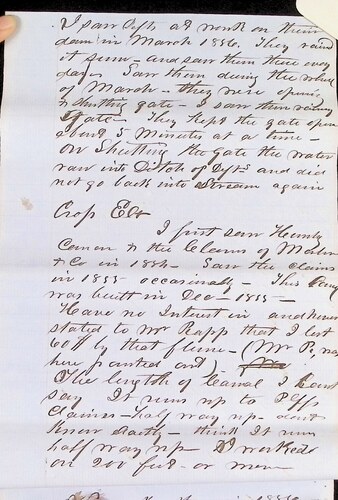 I saw Defts at work on their
dam in March 1856. They raised
it some - and saw them there every
day. Saw them during the whole
of March - they were opening
& shutting gate - I saw them raising
gate - They kept the gate open
about 5 minutes at a time -
On Shutting the gate the water
ran into Ditch of Defts and did
not go back into Stream again
Cross Ex
I first saw Humbug
Canon & the Claims of
& Co in 1854 - Saw the claims
in 1855 occasionly - This
was built in Dec - 1855 -
Have no Interest in and never
stated to Mr Rapp that I lost
60 by that flume - (Mr R. was
here pointed out)
The length of Canal I cant
say It runs up to Plffs
Claims - half way up - dont
Know exactly - think It runs
half way up - D worked
on 200 feet or more